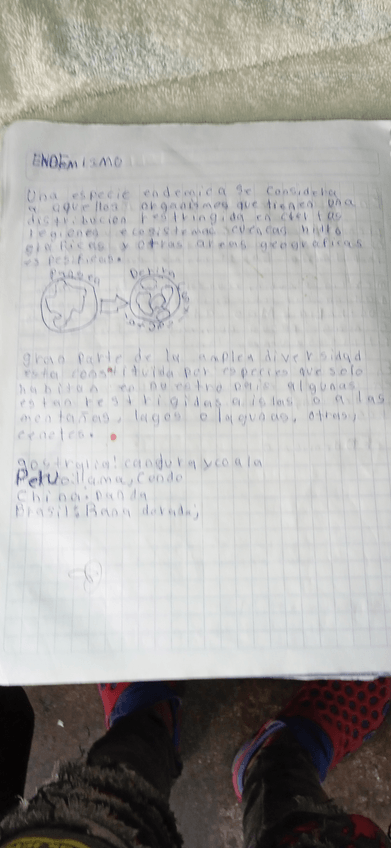 ENDEMISMO
Una especie endemica se considera
a aquellos organismos que tienen una
distribucion restringida en ciertas
regiones ecosistemas cuencas hidro
graficas y otras areas geograficas
espesificas.
Pangea Deriba
gran parte de la amplea diversidad
esta constituida por especies que solo
habitan en nuestro pais algunas
estan restrigidas a islas o a las
montañas, lagos o lagunas, otras,
cenotes.
aostralia: canguro y coala
Peru: llama, Condo
China: Panda
Brasil: Rana dorada;